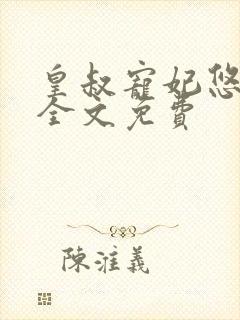 皇叔寵妃悠
全文免費
陳漼義